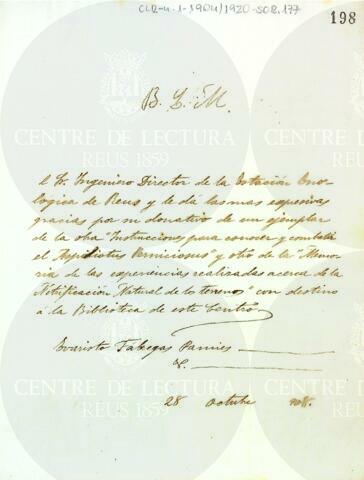 CLR-4.1-1904/1920-SOB.177
198
B. L. M.
CENTRE DE LECTURA
REUS 1859
al Sr. Ingeniero Director de la Estación Eno-
lógica de Reus y le dá las mas espresivas
gracias por su donativo de un ejemplar
de la obra "Instrucciones para conocer y combatir
el Aspidiotus Perniciosus" y otro de la "Memo-
ria de las experiencias realizadas acerca de la
Nitrificación Natural de los terrenos" con destino
á la Biblioteca de este Centro
Evaristo Fábregas Pamies
28 octubre 908.
CENTRE DE LECTURA
REUS 1859